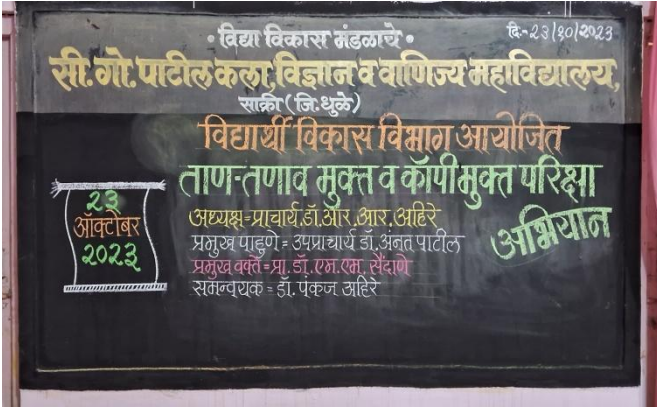 • विद्या विकास मंडळाचे •
दि:-२३/१०/२०२३
सी.गो. पाटील कला, विज्ञान व वाणिज्य महाविद्यालय,
साक्री (जि.धुळे)
विद्यार्थी विकास विभाग आयोजित
ताण-तणाव मुक्त व कॉपीमुक्त परिक्षा
अभियान
२३
ऑक्टोंबर
२०२३
अध्यक्ष=प्राचार्य.डॉ.आर.आर.अहिरे
प्रमुख पाहुणे = उपप्राचार्य डॉ.अनंत पाटील
प्रमुख वक्ते=प्रा.डॉ.एम.एम. सैंदाणे
समन्वयक = डॉ. पंकज अहिरे